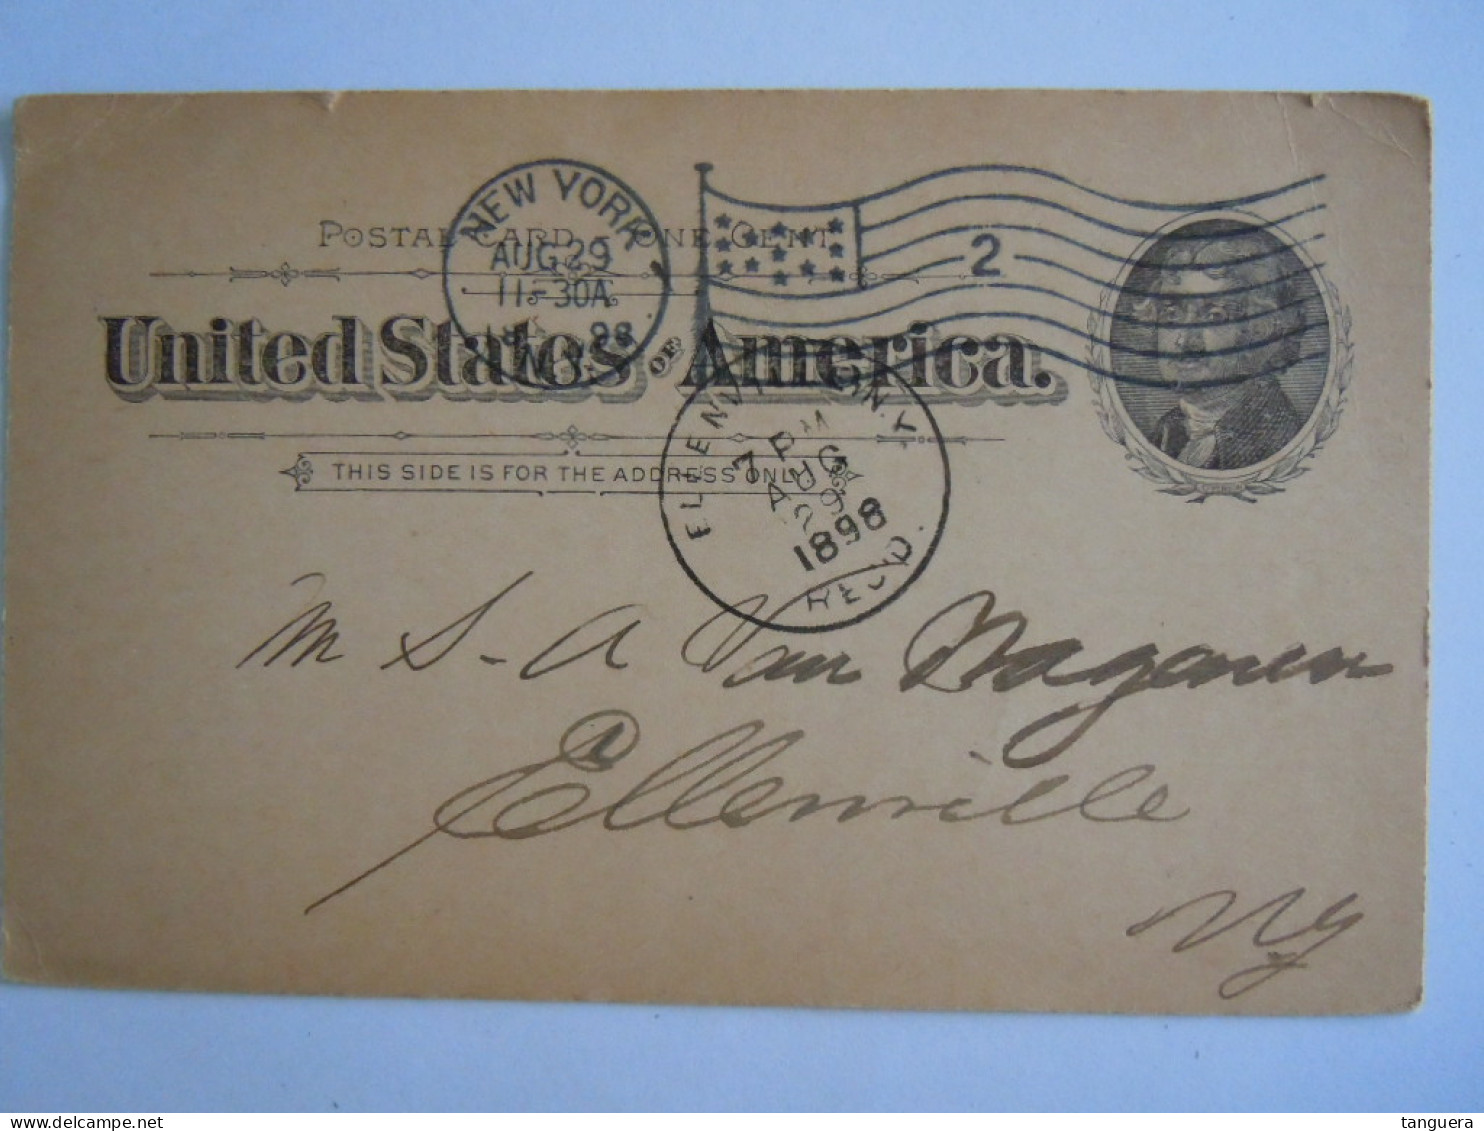 POSTAL CARD - ONE CENT
United States OF America.
THIS SIDE IS FOR THE ADDRESS ONLY
NEW YORK
AUG 29
11-30A
98
N.Y.
2
ELLENVILLE N.Y.
7 PM
AUG
29
1898
REC'D.
M S-A Van Wagenen
Ellenville
NY
tanguera